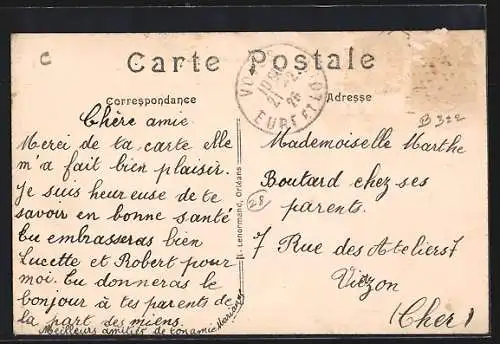 C
Carte Postale
Correspondance
Adresse
EURE ET L
B 322
Chère amie
Merci de ta carte elle
m'a fait bien plaisir.
Je suis heureuse de te
savoir en bonne santé
Tu embrasseras bien
Lucette et Robert pour
moi. Tu donneras le
bonjour à tes parents de
la part des miens.
Meilleurs amitiés de ton amie Marianne
L. Lenormand, Orléans
28
Mademoiselle Marthe
Boutard chez ses
parents.
7 Rue des Ateliers 7
Vierzon
(Cher)